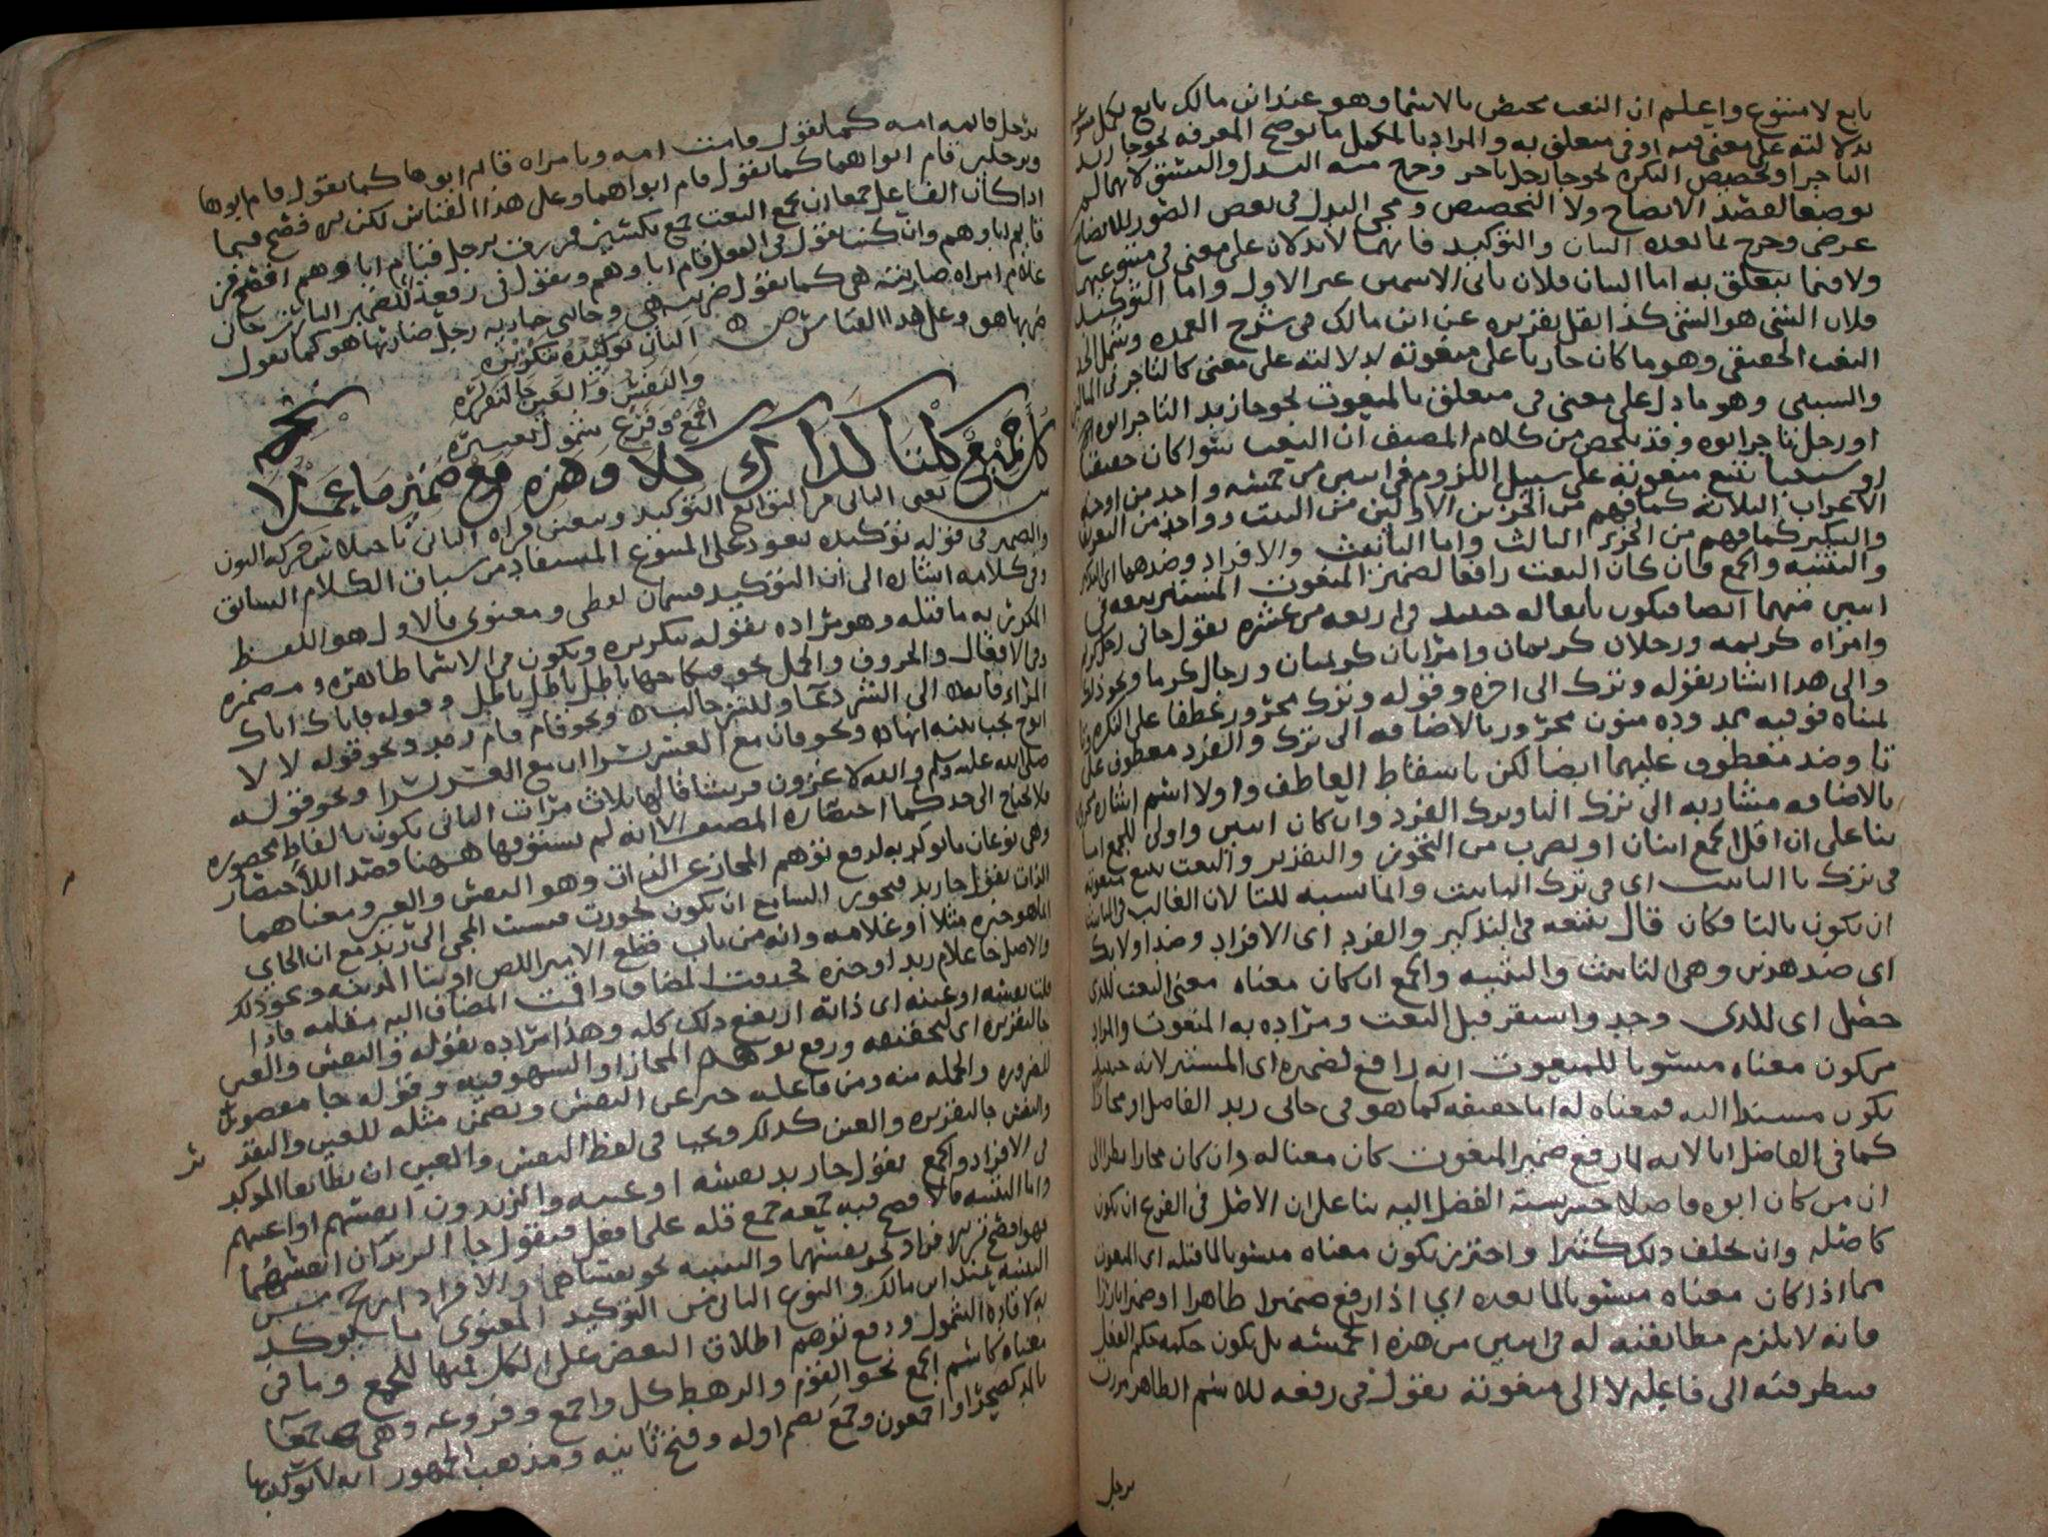 تابع لا متبوع واعلم ان النعت مختص بالاسما وهو عند ابن مالك تابع يكمل متبوعه
بدلالته على معنى فيه او في متعلق به والمراد بالمكمل ما يوضح المعرفه نحو جا زيد
التاجر او تخصيص النكره نحو جا رجل تاجر وخرج منه البدل والنسق لانهما لم
يوضعا لقصد الايضاح ولا التخصيص ومجي البدل في بعض الصور للايضاح
عرضي وخرج بما بعده البيان والتوكيد فانهما لا يدلان على معنى في متبوعهما
ولا فيما يتعلق به اما البيان فلان ثاني الاسمين عين الاول واما التوكيد
فلان الشي هو الشي كذا نقل تقريره عن ابن مالك في شرح العمده وشمل الحد
النعت الحقيقي وهو ما كان جاريا على منعوته بدلالته على معنى كالتاجر في المثال
والسببي وهو ما دل على معنى في متعلق بالمنعوت نحو جا زيد التاجر ابوه
او رجل تاجر ابوه وقد تلخص من كلام المصنف ان النعت سوا كان حقيقيا
او سببيا يتبع منعوته على سبيل اللزوم في اثنين من خمسه واحد من اوجه
الاعراب الثلاثه كما فهم من الجزين الاولين من البيت وواحد من التعريف
والتنكير كما فهم من الجزء الثالث واما التانيث والافراد وضدهما اي التذكير
والتثنيه والجمع فان كان النعت رافعا لضمير المنعوت المستتر تبعه في
اثنين منهما ايضا فيكون تابعا له حينيذ في اربعه من عشره تقول جاني رجل كريم
وامراه كريمه ورجلان كريمان وامراتان كريمتان ورجال كرما ونحو ذلك
والى هذا اشار بقوله وترك الى اخره وقوله وترك مجرور عطفا على النكره
تا وضد معطوف عليهما ايضا لكن باسقاط العاطف واولا اسم اشاره
بالاضافه مشار به الى ترك التا وترك الفرد وان كان اثنين واولى للجمع اما
بنا على ان اقل الجمع اثنان او لضرب من التجوز والتقدير والنعت يتبع منعوته
في ترك تا التانيث اي في ترك التانيث والمناسبه للتا لان الغالب في التانيث
ان يكون بالتا فكان قال يتبعه في التذكير والفرد اي الافراد وضد اولايك
اي ضد هدين وهي التانيث والتثنيه والجمع ان كان معناه معنى النعت للذي
حصل اي للذي وجد واستقر قبل النعت ومراده به المنعوت والمراد
من كون معناه منسوبا للمنعوت انه رافع لضميره اي المستتر لانه حينيذ
يكون مسندا اليه فمعناه له اما حقيقه كما هو في جاني زيد الفاضل او مجازا
كما في الفاضل ابا لانه لما رفع ضمير المنعوت كان معناه له وان كان مجازا نظرا الى
ان من كان ابوه فاضلا حسن نسبة الفضل اليه بنا على ان الاصل في الفرع ان يكون
كاصله وان تخلف ذلك كثيرا واحترز بكون معناه منسوبا لما قبله اي المنعوت
مما اذا كان معناه منسوبا لما بعده اي اذا رفع ضميرا ظاهرا او ضميرا بارزا
فانه لا يلزم مطابقته له في اثنين من هذه الخمسه بل يكون حكمه حكم الفعل
فينظر فيه الى فاعله لا الى منعوته تقول في رفعه للاسم الظاهر مررت
برجل
برجل قايمه امه كما تقول قامت امه وبامراه قايم ابوها كما تقول قام ابوها
وبرجلين قايم ابواهما كما تقول قام ابواهما وعلى هذا القياس لكن يرجح فيما
اذا كان الفاعل جمعا ان يجمع النعت جمع تكسير فمررت برجل قيام اباوهم افصح من
قايم اباوهم وان كنت تقول في الفعل قام اباوهم وتقول في رفعه للضمير البارز جاني
غلام امراه ضاربته هي كما تقول ضربته هي وجاتني جاريه رجل ضاربها هو كما تقول
ضربها هو وعلى هذا القياس ص الثان توكيده بتكريره
والنفس والعين جا لتقريره
اجمع وفرع شمول تعتبره
كل جميع كلتا كذاك كلا وهذه مع ضمير ما يجلا
ش يعني الثاني من التوابع التوكيد ويتعين قراه الثان باختلاس حركه النون
والضمير في قوله توكيده يعود على المتبوع المستفاد من سياق الكلام السابق
وفي كلامه اشاره الى ان التوكيد قسمان لفظي ومعنوي فالاول هو اللفظ
المكرر به ما قبله وهو مراده بقوله بتكريره ويكون في الاسما ظاهره ومضمره
وفي الافعال والحروف والجمل نحو فنكاحها باطل باطل باطل وقوله فاياك اياك
المراء فانه الى الشر دعا وللشر جالب ونحو قام قام زيد ونحو قوله لا لا
ابوح بحب بثنه انها ونحو فان مع العسر يسرا ان مع العسر يسرا ونحو قوله
صلى الله عليه وسلم والله لاغزون قريشا قالها ثلاث مرات الثاني يكون بالفاظ محصوره
فلا يحتاج الى حد كما اختاره المصنف الا انه لم يستوفها ههنا قصدا للاختصار
وهي نوعان ما يوكد به لدفع توهم المجاز عن الذات وهو النفس والعين ومعناهما
الذات تقول جا زيد فيجوز السامع ان يكون تجوزت بنسبت المجي الى زيد مع ان الجاي
انما هو خبره مثلا او غلامه وانه من باب قطع الامير اللص او بنا المدينه ونحو ذلك
والاصل جا غلام زيد او خبره فحذفت المضاف واقمت المضاف اليه مقامه فاذا
قلت نفسه او عينه اي ذاته ارتفع ذلك كله وهذا مراده بقوله والنفس والعين
جا لتقريره اي لتحقيقه ورفع توهم المجاز او السهو فيه وقوله جا مقصور
للضروره والجمله منه ومن فاعله خبر عن النفس وتضمن مثله للعين والتقدير
والنفس جا لتقريره والعين كذلك ويجب في لفظ النفس والعين ان يطابقا الموكد
في الافراد والجمع تقول جا زيد نفسه او عينه والزيدون انفسهم او اعينهم
واما التثنيه فالافصح فيه جمعه جمع قله على افعل فيقول جا الزيدان انفسهما
فهو افصح من الافراد نحو نفسهما والتثنيه نحو نفساهما والافراد ارجح من
التثنيه عند ابن مالك والنوع الثاني من التوكيد المعنوي ما يوكد
به لافاده الشمول ودفع توهم اطلاق البعض على الكل فمنها للجمع وما في
معناه كاسم الجمع نحو القوم والرهط كل واجمع وفروعه وهي جمعا
بالمد كصحرا واجمعون وجمع بضم اوله وفتح ثانيه ومذهب الجمهور انه لا يوكد بها